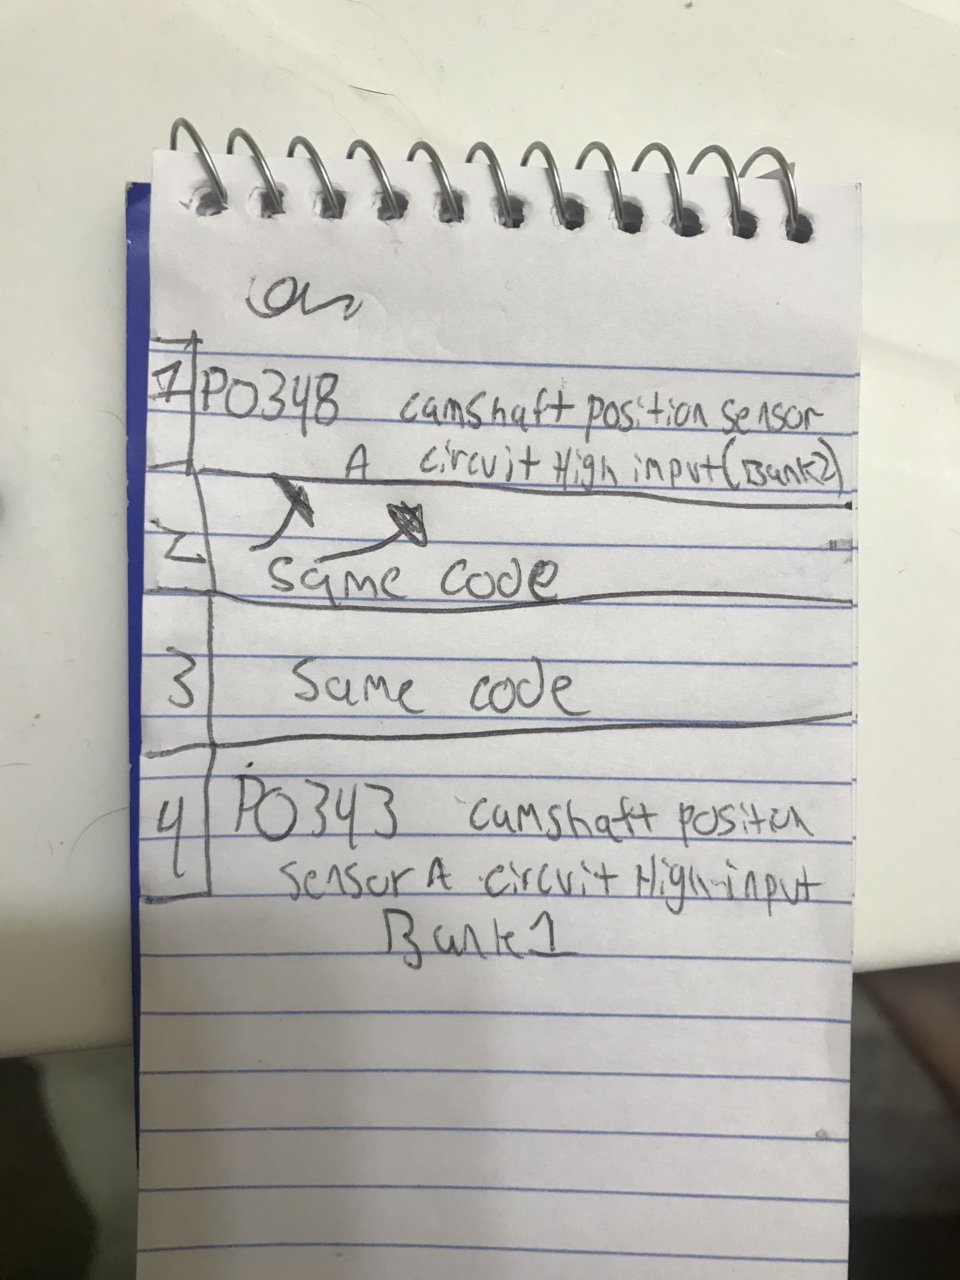 1 P0348 camshaft position sensor
A circuit High input (Bank2)
2 same code
3 Same code
4 P0343 camshaft position
sensor A circuit High input
Bank 1